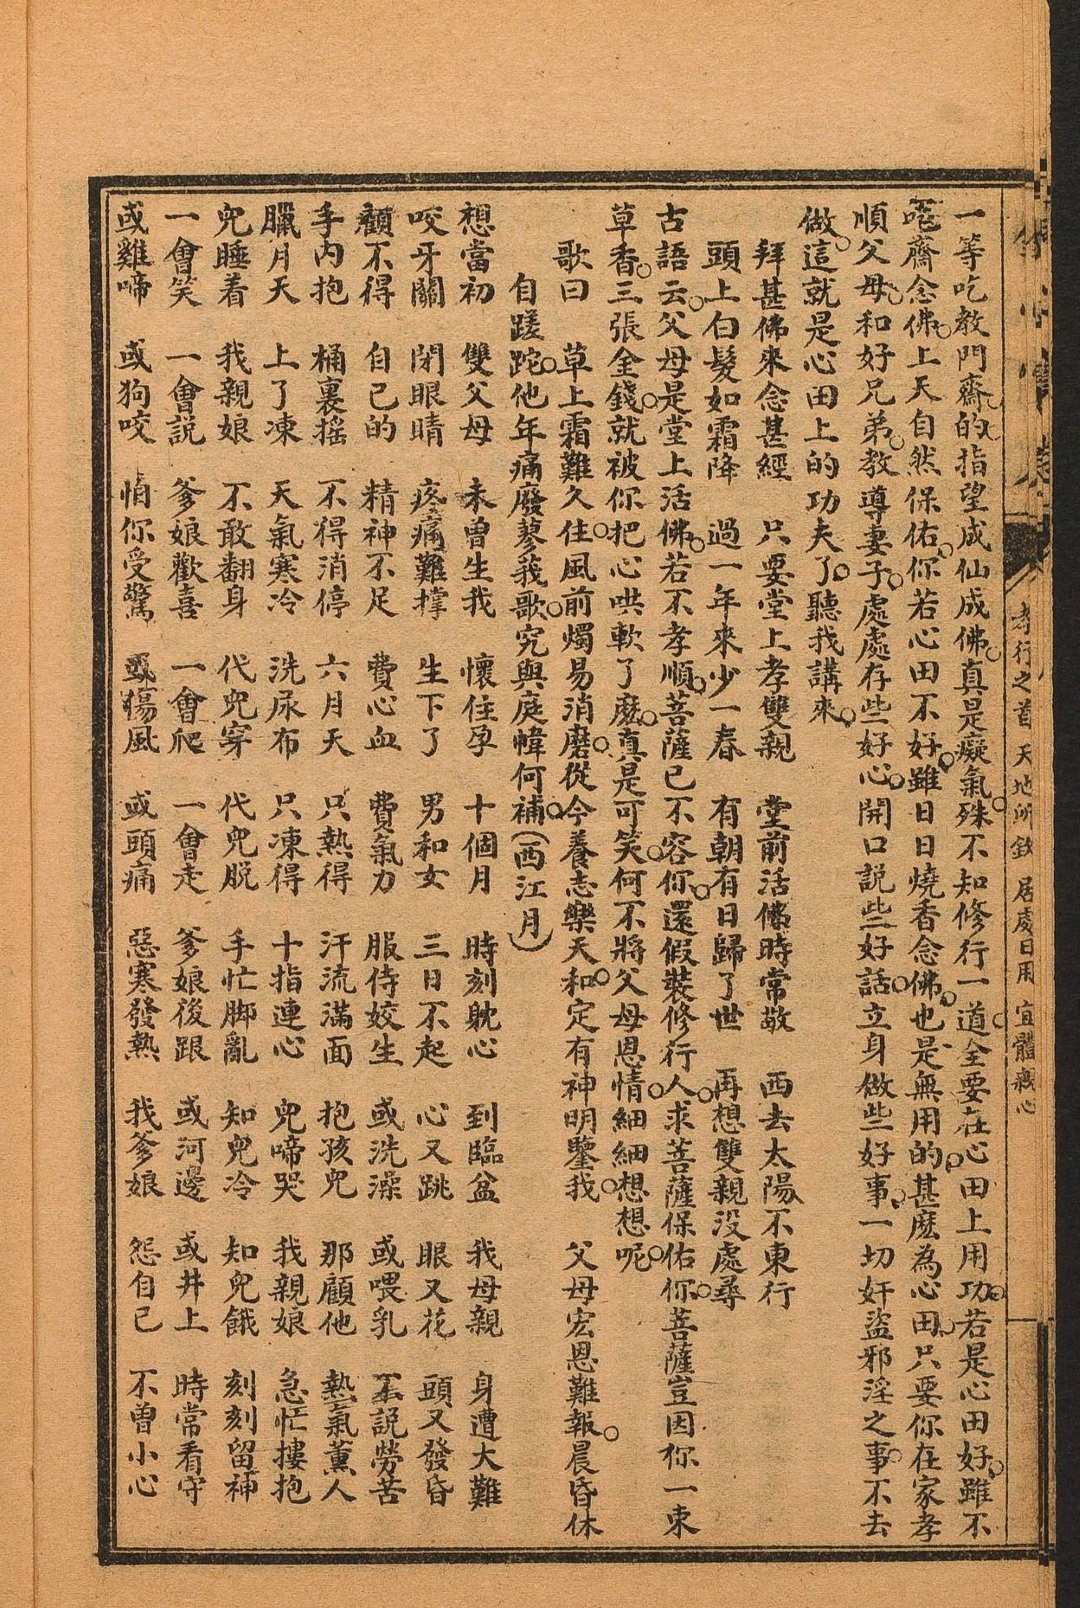 孝行之首 天地所欽 居處日用 宜體親心
一等吃教門齋的指望成仙成佛真是癡氣殊不知修行一道全要在心田上用功若是心田好雖不
吃齋念佛上天自然保佑你若心田不好雖日日燒香念佛也是無用的甚麼為心田只要你在家孝
順父母和好兄弟教導妻子處處存些好心開口説些好話立身做些好事一切奸盜邪淫之事不去
做這就是心田上的功夫了聽我講來
拜甚佛來念甚經 只要堂上孝雙親 堂前活佛時常敬 西去太陽不東行
頭上白髮如霜降 過一年來少一春 有朝有日歸了世 再想雙親没處尋
古語云父母是堂上活佛若不孝順菩薩已不容你還假裝修行人求菩薩保佑你菩薩豈因你一束
草香三張金錢就被你把心哄軟了麽真是可笑何不將父母恩情細細想想呢
歌曰 草上霜難久住風前燭易消磨從今養志樂天和定有神明鑒我 父母宏恩難報晨昏休
自蹉跎他年痛廢蓼莪歌究與庭幃何補(西江月)
想當初 雙父母 未曾生我 懷住孕 十個月 時刻躭心 到臨盆 我母親 身遭大難
咬牙關 閉眼睛 疼痛難撑 生下了 男和女 三日不起 心又跳 眼又花 頭又發昏
顧不得 自已的 精神不足 費心血 費氣力 服侍姣生 或洗澡 或喂乳 不説勞苦
手内抱 桶裏摇 不得消停 六月天 只熱得 汗流滿面 抱孩兒 那顧他 熱氣薰人
臘月天 上了凍 天氣寒冷 洗尿布 只凍得 十指連心 兒啼哭 我親娘 急忙摟抱
兒睡着 我親娘 不敢翻身 代兒穿 代兒脱 手忙脚亂 知兒冷 知兒餓 刻刻留神
一會笑 一會説 爹娘歡喜 一會爬 一會走 爹娘後跟 或河邊 或井上 時常看守
或雞啼 或狗咬 怕你受驚 或傷風 或頭痛 惡寒發熱 我爹娘 怨自已 不曾小心